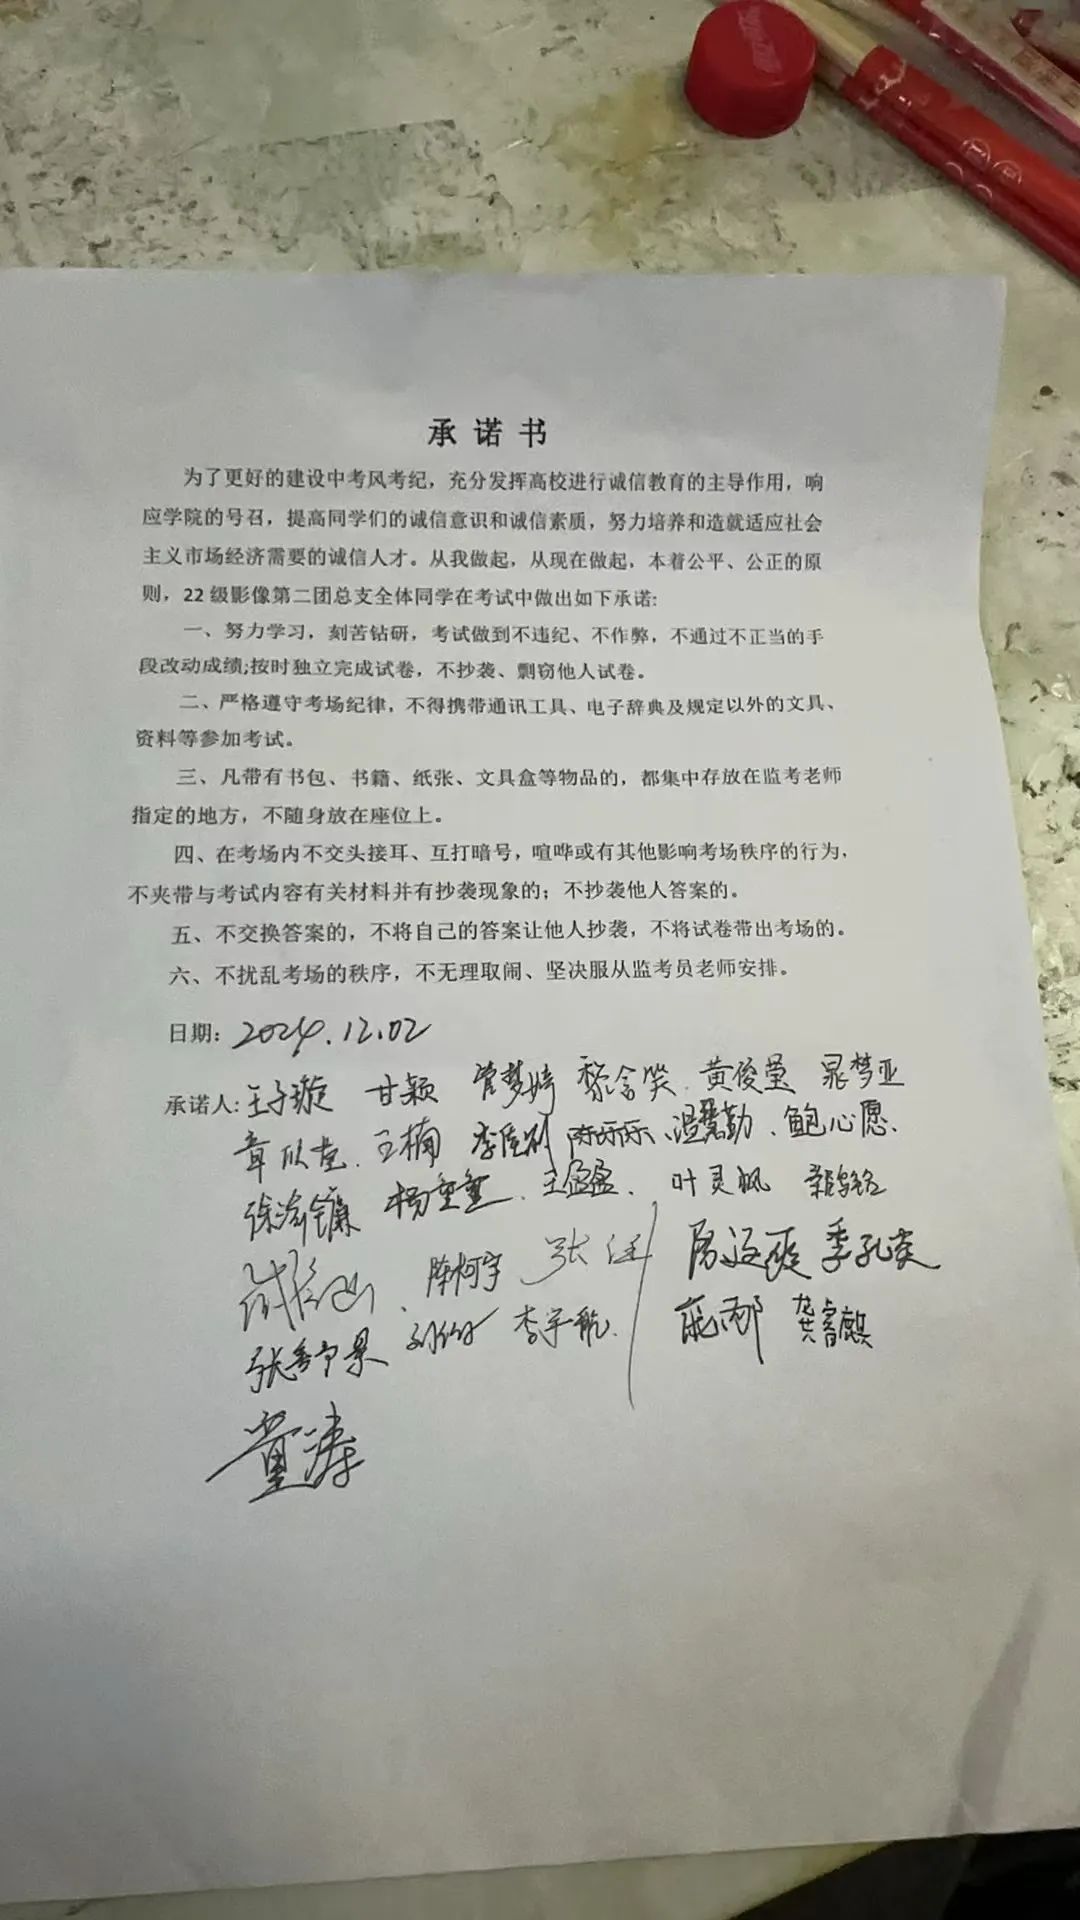 承诺书
为了更好的建设中考风考纪，充分发挥高校进行诚信教育的主导作用，响
应学院的号召，提高同学们的诚信意识和诚信素质，努力培养和造就适应社会
主义市场经济需要的诚信人才。从我做起，从现在做起，本着公平、公正的原
则，22级影像第二团总支全体同学在考试中做出如下承诺:
一、努力学习，刻苦钻研，考试做到不违纪、不作弊，不通过不正当的手
段改动成绩;按时独立完成试卷，不抄袭、剽窃他人试卷。
二、严格遵守考场纪律，不得携带通讯工具、电子辞典及规定以外的文具、
资料等参加考试。
三、凡带有书包、书籍、纸张、文具盒等物品的，都集中存放在监考老师
指定的地方，不随身放在座位上。
四、在考场内不交头接耳、互打暗号，喧哗或有其他影响考场秩序的行为，
不夹带与考试内容有关材料并有抄袭现象的；不抄袭他人答案的。
五、不交换答案的，不将自己的答案让他人抄袭，不将试卷带出考场的。
六、不扰乱考场的秩序，不无理取闹、坚决服从监考员老师安排。
日期：2024.12.02
承诺人：王子璇 甘颖 管梦婷 黎含笑 黄俊莹 晁梦亚
王楠 温馨勤、鲍心愿、
王盈盈、叶灵枫
陈柯宇 季孔英
李宇航 龚睿麒
董涛